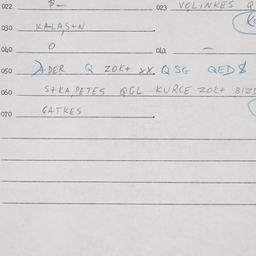 022 P— 023 VOLINKES Q
030 KALAS+N
040 O 041 —
050 ADER Q ZOK+ XX. Q SG QED $
060 S+KA PETES QGL KURCE ZOK+ BIZD
070 GATKES